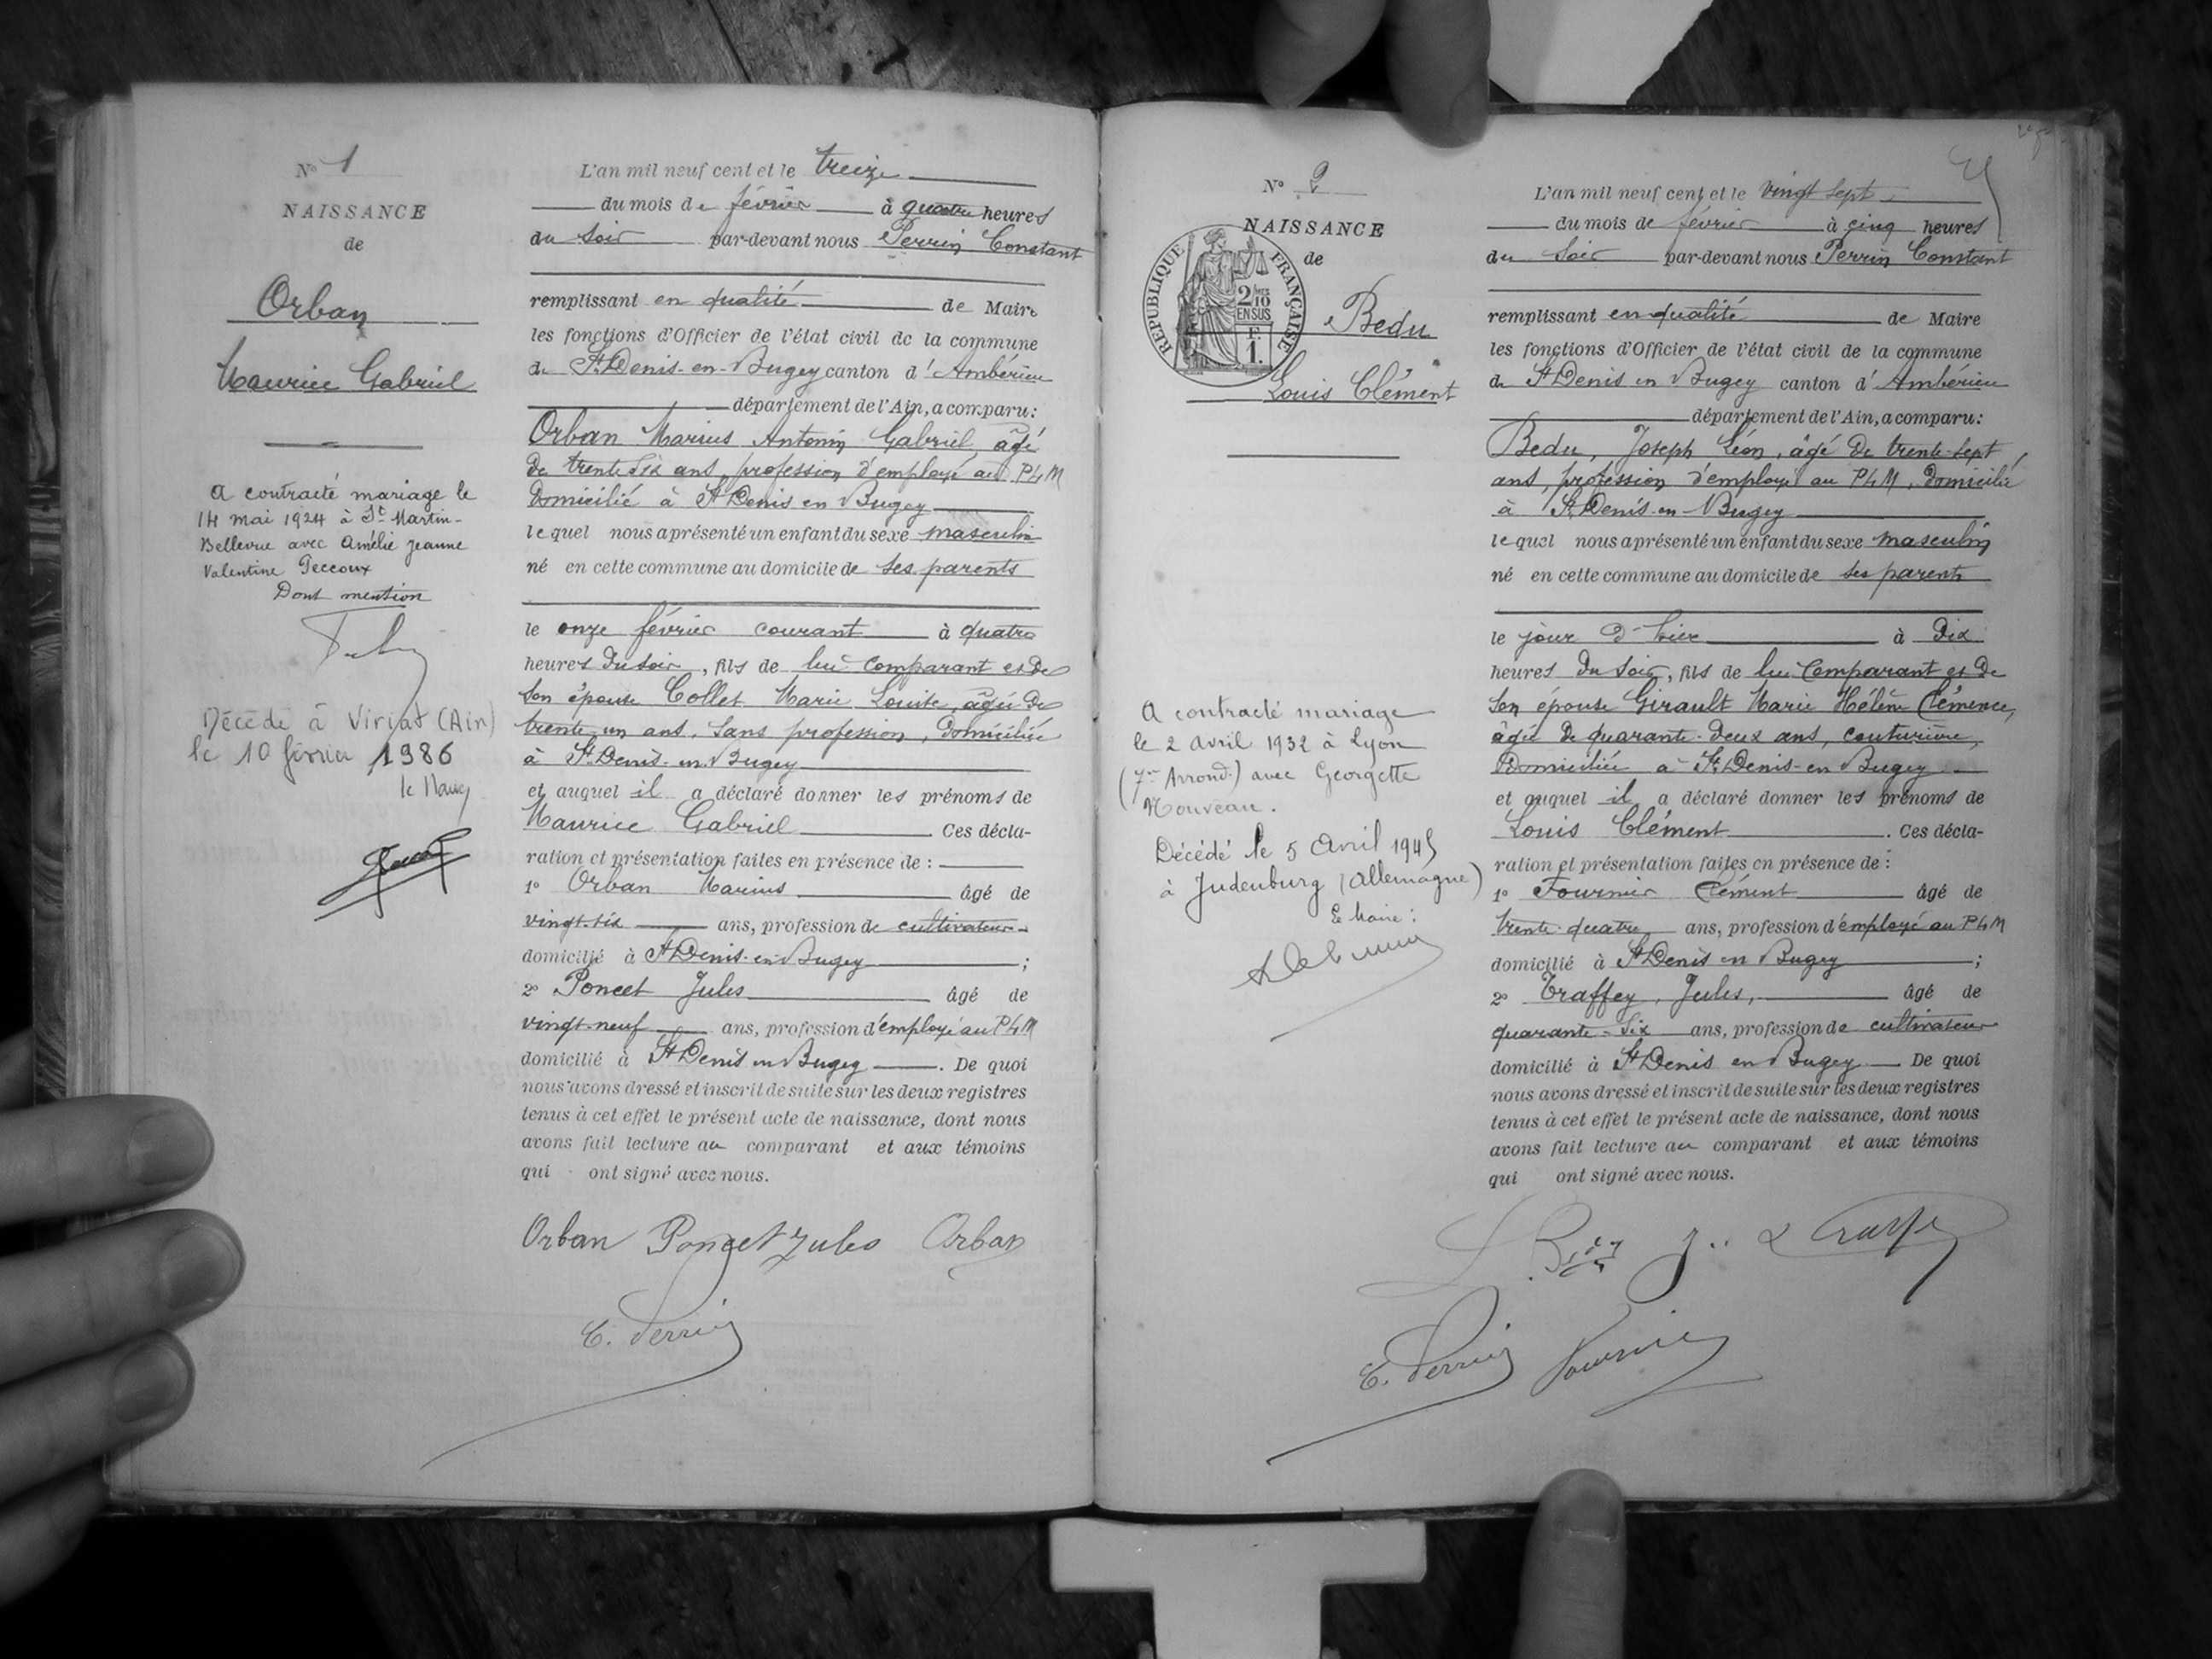 N° 1
NAISSANCE
de
Orban
Maurice Gabriel
a contracté mariage le
14 mai 1924 à St Martin-
Bellevue avec Amélie Jeanne
Valentine Peccoux
Dont mention
Décédé à Viriat (Ain)
le 10 février 1986
le Maire
L'an mil neuf cent et le treize
du mois de février à quatre heures
du soir par-devant nous Perrin Constant
remplissant en qualité de Maire
les fonctions d'Officier de l'état civil de la commune
de St Denis-en-Bugey canton d'Ambérieu
département de l'Ain, a comparu:
Orban Marius Antonin Gabriel, âgé
de trente six ans, profession d'employé au PLM
domicilié à St Denis en Bugey
lequel nous a présenté un enfant du sexe masculin
né en cette commune au domicile de ses parents
le onze février courant à quatre
heures du soir, fils de lui comparant et de
son épouse Collet Marie Louise, âgée de
trente un ans, sans profession, domiciliée
à St Denis-en-Bugey
et auquel il a déclaré donner les prénoms de
Maurice Gabriel Ces décla-
ration et présentation faites en présence de :
1° Orban Marius âgé de
vingt-six ans, profession de cultivateur
domicilié à St Denis-en-Bugey ;
2° Poncet Jules âgé de
vingt-neuf ans, profession d'employé au PLM
domicilié à St Denis en Bugey . De quoi
nous avons dressé et inscrit de suite sur les deux registres
tenus à cet effet le présent acte de naissance, dont nous
avons fait lecture au comparant et aux témoins
qui ont signé avec nous.
Orban Poncet Jules Orban
C. Perrin
N° 2
NAISSANCE
de
REPUBLIQUE FRANÇAISE
2/10
EN SUS
F.
1.
Bedu
Louis Clément
a contracté mariage
le 2 avril 1932 à Lyon
(7e Arrond.) avec Georgette
Nouveau.
Décédé le 5 Avril 1945
à Judenburg (Allemagne)
Le Maire :
L'an mil neuf cent et le vingt sept
du mois de février à cinq heures
du soir par-devant nous Perrin Constant
remplissant en qualité de Maire
les fonctions d'Officier de l'état civil de la commune
de St Denis en Bugey canton d'Ambérieu
département de l'Ain, a comparu:
Bedu, Joseph Léon, âgé de trente-sept
ans, profession d'employé au PLM, domicilié
à St Denis-en-Bugey
lequel nous a présenté un enfant du sexe masculin
né en cette commune au domicile de ses parents
le jour d'hier à dix
heures du soir, fils de lui comparant et de
son épouse Girault Marie Hélène Clémence,
âgée de quarante-deux ans, couturière,
domiciliée à St Denis-en Bugey
et auquel il a déclaré donner les prénoms de
Louis Clément . Ces décla-
ration et présentation faites en présence de :
1° Fournier Clément âgé de
trente-quatre ans, profession d'employé au PLM
domicilié à St Denis en Bugey ;
2° Traffey, Jules, âgé de
quarante-six ans, profession de cultivateur
domicilié à St Denis en Bugey De quoi
nous avons dressé et inscrit de suite sur les deux registres
tenus à cet effet le présent acte de naissance, dont nous
avons fait lecture au comparant et aux témoins
qui ont signé avec nous.
C. Perrin Fournier